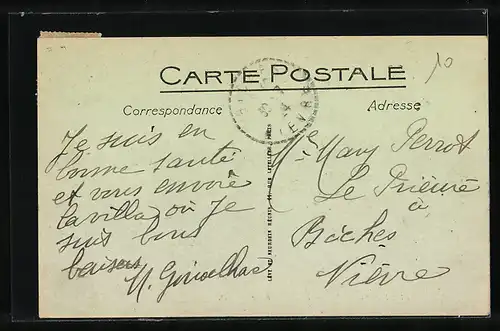 CARTE POSTALE
Correspondance
Adresse
10
Je suis en
bonne santé
et vous envoie
la villa où Je
suis bons
baisers
Mary Perrot
Le Prieuré
à
Bèches
Nièvre